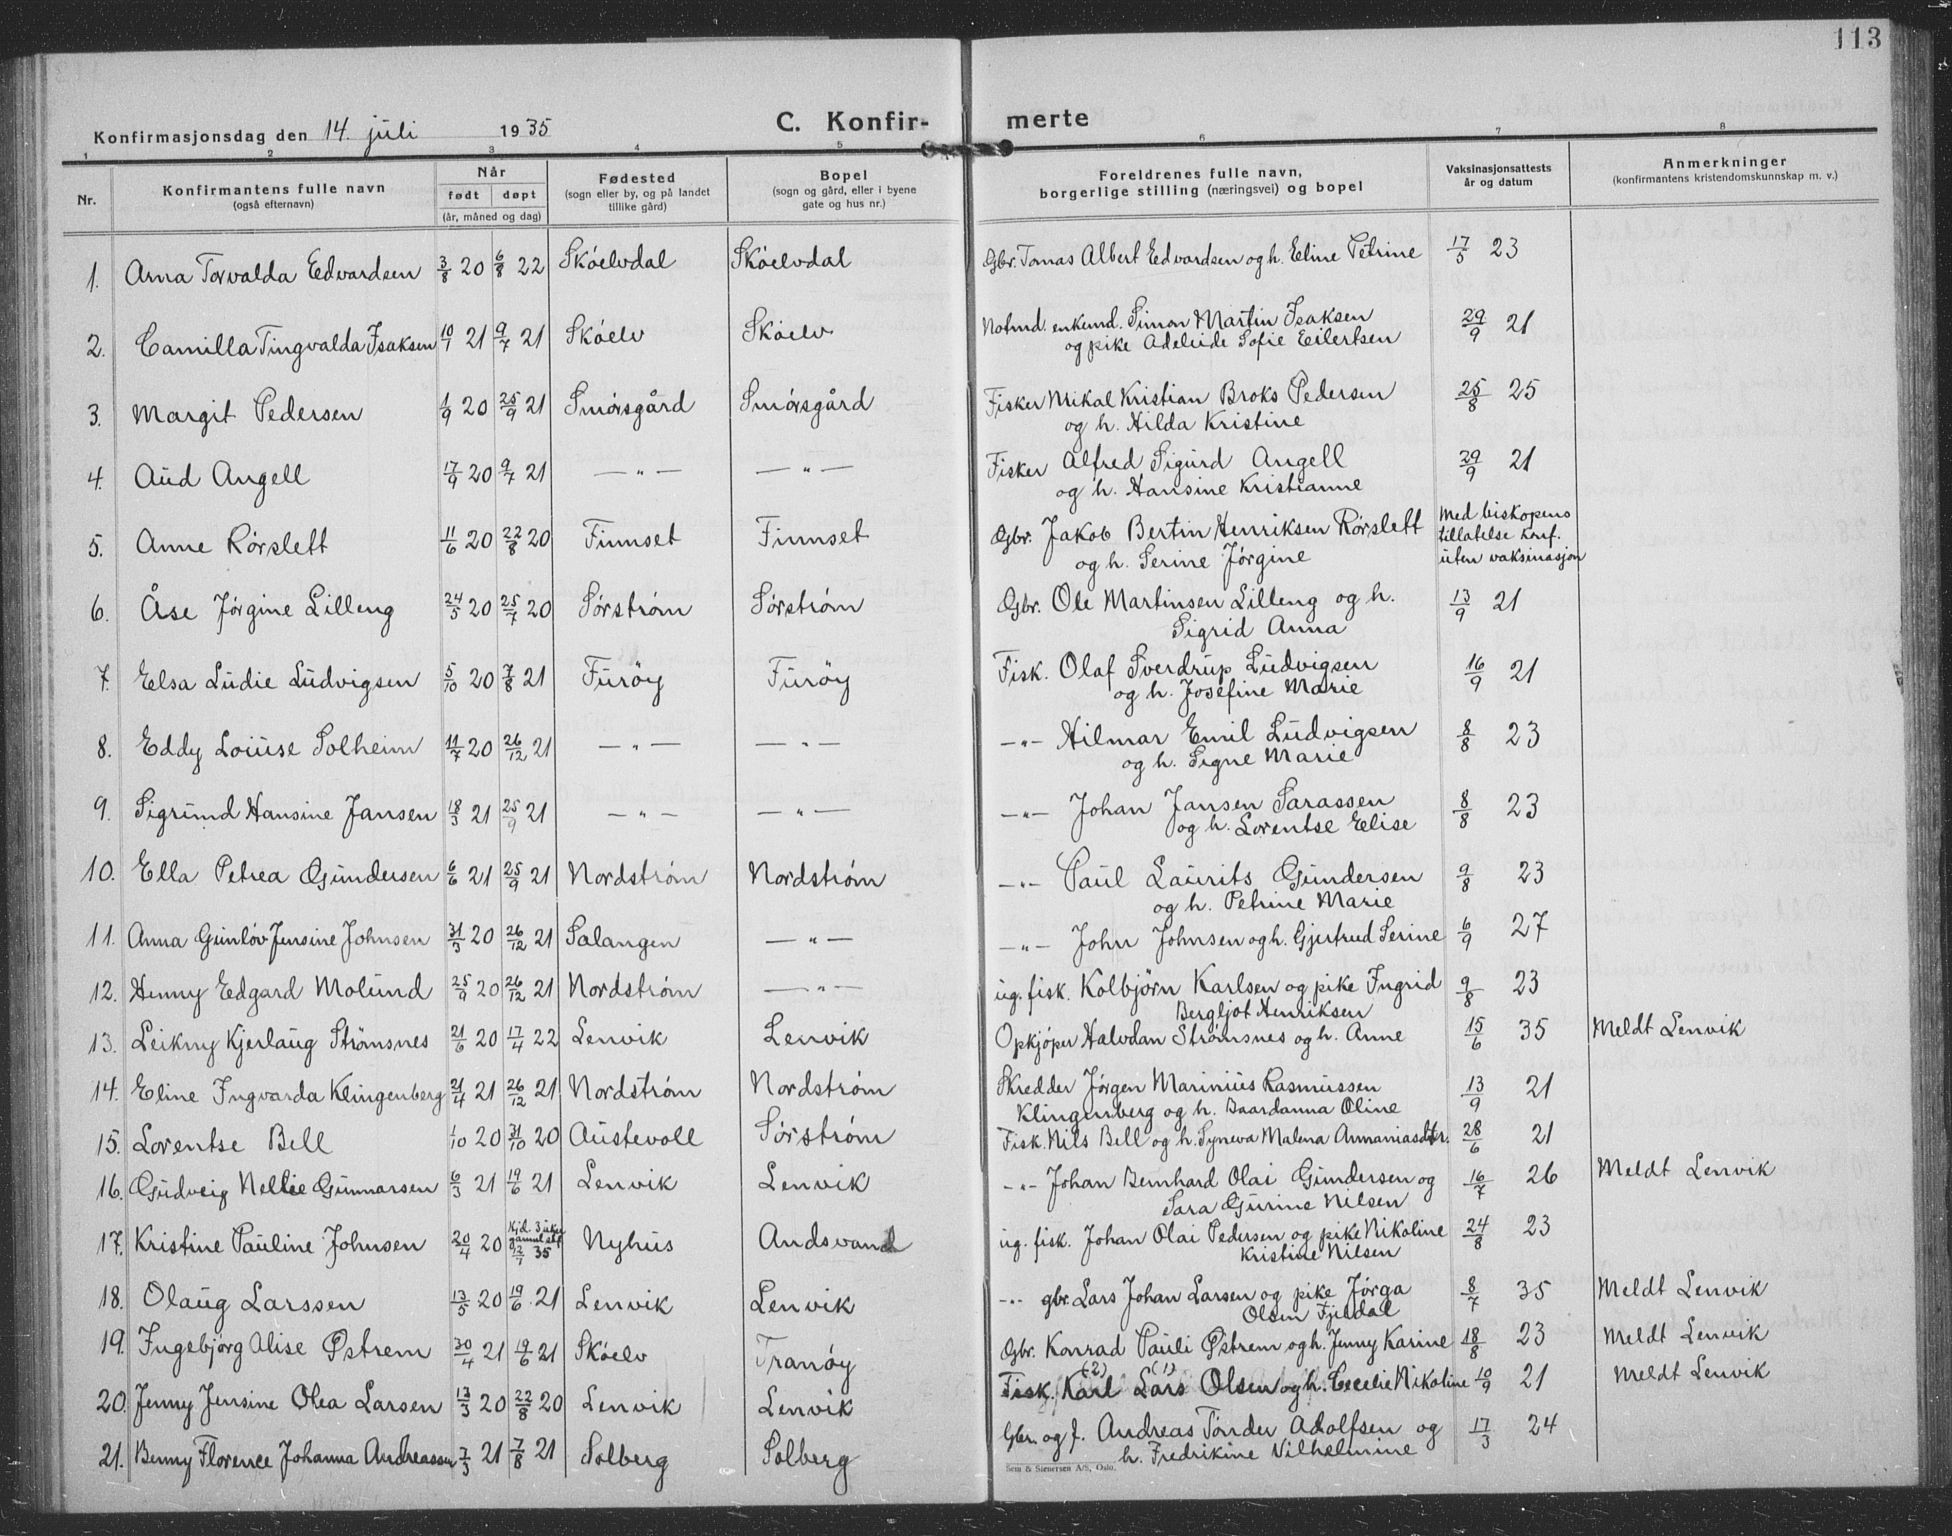 113
Konfirmasjonsdag den 14. juli 1935
C. Konfirmerte
1 2 3 4 5 6 7 8
Nr. | Konfirmantens fulle navn (også efternavn) | Når født døpt (år, måned og dag) | Fødested (sogn eller by, og på landet tillike gård) | Bopel (sogn og gård, eller i byene gate og hus nr.) | Foreldrenes fulle navn, borgerlige stilling (næringsvei) og bopel | Vaksinasjonsattests år og datum | Anmerkninger (konfirmantens kristendomskunnskap m. v.)
1. Arna Torvalda Edvardsen 3/8 20 6/8 22 Skóelvdal Skóelvdal Gbr. Tomas Albert Edvardsen og h. Eline Petrine 17/5 23
2. Camilla Tingvalda Isaksen 10/1 21 9/7 21 Skóelv Skóelv Notmd. enkemd. Simon Martin Isaksen og pike Adeleide Sofie Eilertsen 29/9 21
3. Margit Pedersen 1/9 20 25/9 21 Smórsgård Smórsgård Fisker Mikal Kristian Broks Pedersen og h. Hilda Kristine 25/8 25
4. Aud Angell 17/9 20 9/7 21 — " — — " — Fisker Alfred Sigurd Angell og h. Hansine Kristianne 29/9 21
5. Anne Rórslett 11/6 20 22/8 20 Finnset Finnset Gbr. Jakob Bertin Henriksen Rórslett og h. Serine Jórgine Med biskopens tillatelse konf. uten vaksinasjon
6. Åse Jórgine Lilleng 24/5 20 25/7 20 Sórstróm Sórstróm Gbr. Ole Martinsen Lilleng og h. Sigrid Anna 13/9 21
7. Elsa Ludie Ludvigsen 5/10 20 7/8 21 Furöy Furöy Fisk. Olaf Sverdrup Ludvigsen og h. Josefine Marie 16/9 21
8. Eddy Loiuse Solheim 11/7 20 26/12 21 — " — — " — — " — Hilmar Emil Ludvigsen og h. Signe Marie 8/8 23
9. Sigrund Hansine Jansen 18/3 21 25/9 21 — " — — " — — " — Johan Jansen Sarassen og h. Lorentse Elise 8/8 23
10. Ella Petrea Gundersen 6/6 21 25/9 21 Nordstróm Nordstróm — " — Paul Laurits Gundersen og h. Petrine Marie 9/8 23
11. Anna Gunlóv Jensine Johnsen 31/3 20 26/12 21 Salangen — " — — " — John Johnsen og h. Gjertrud Serine 6/9 27
12. Henny Edgard Molund 25/9 20 26/12 21 Nordstróm — " — ug. fisk. Kolbjörn Karlsen og pike Ingrid Bergljot Henriksen 9/8 23
13. Leikny Kjerlaug Strömsnes 21/6 20 17/4 22 Lenvik Lenvik Opkjóper Halvdan Strömsnes og h. Anne 15/6 35 Meldt Lenvik
14. Eline Ingvarda Klingenberg 21/4 21 26/12 21 Nordstróm Nordstróm Skredder Jórgen Marinius Rasmussen Klingenberg og h. Baardanna Oline 13/9 21
15. Lorentse Bell 1/10 20 31/10 20 Austevoll Sórstróm Fisk. Nils Bell og h. Syneva Malena Annaniasdtr. 28/6 21
16. Gudveig Nellie Gunnarsen 6/3 21 19/6 21 Lenvik Lenvik — " — Johan Bernhard Olai Gundersen og Sara Gurine Nilsen 16/7 26 Meldt Lenvik
17. Kristine Pauline Johnsen 20/4 20 35 Nyhus Andsvand ug. fisk. Johan Olai Pedersen og pike Nikoline Kristine Nilsen 24/8 23
18. Olaug Larssen 13/5 20 19/6 21 Lenvik Lenvik — " — gbr. Lars Johan Larsen og pike Jórga Olsen Fjeldal 8/7 35 Meldt Lenvik
19. Ingebjórg Alise Østrem 30/4 21 19/6 21 Skóelv Tranöy Gbr. Konrad Pauli Østrem og h. Jenny Karine 18/8 23 Meldt Lenvik
20. Jenny Jensine Olea Larsen 13/3 20 22/8 20 Lenvik Lenvik Fisk. Karl (2) Lars (1) Olsen og h. Cecelie Nikoline 10/9 21 Meldt Lenvik
21. Benny Florence Johanna Andreassen 7/3 21 7/8 21 Solberg Solberg Gbr. og f. Andreas Tónder Adolfsen og h. Fredrikine Vilhelmine 17/3 24
Sem & Stenersen A/S, Oslo.